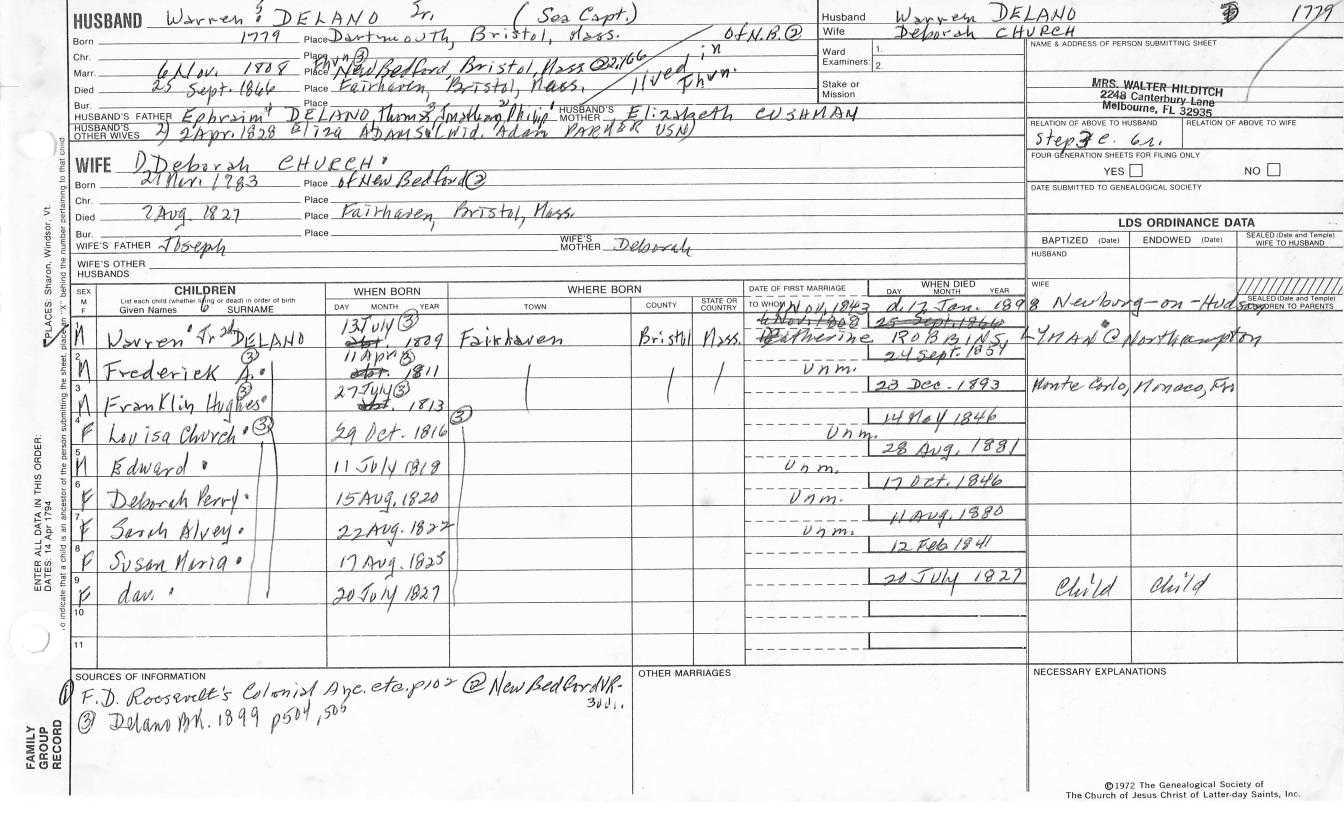 HUSBAND Warren 5 DELANO Sr. (Sea Capt.)
Born 1779 Place Dartmouth, Bristol, Mass. of N.B. ②
Chr. Place Fhvn ③
Marr. 6 Nov. 1808 Place New Bedford Bristol, Mass ② 2,166 lived in Fhvn.
Died 25 Sept. 1866 Place Fairhaven, Bristol, Mass.
Bur. Place
HUSBAND'S FATHER Ephraim 4 DELANO, Thomas 3 Jonathan 2 Philip 1 HUSBAND'S MOTHER Elizabeth CUSHMAN
HUSBAND'S OTHER WIVES 2) 2 Apr. 1828 Eliza ADAMS (wid. Adam PARKER USN)
WIFE D. Deborah CHURCH
Born 21 Mar. 1783 Place of New Bedford ②
Chr. Place
Died 7 Aug. 1827 Place Fairhaven, Bristol, Mass.
Bur. Place
WIFE'S FATHER Joseph WIFE'S MOTHER Deborah
WIFE'S OTHER HUSBANDS
Husband Warren DELANO 1779
Wife Deborah CHURCH
Ward Examiners: 1.
2.
Stake or Mission
NAME & ADDRESS OF PERSON SUBMITTING SHEET
MRS. WALTER HILDITCH
2248 Canterbury Lane
Melbourne, FL 32935
RELATION OF ABOVE TO HUSBAND RELATION OF ABOVE TO WIFE
Step 3 C. 6r.
FOUR GENERATION SHEETS FOR FILING ONLY
YES NO
DATE SUBMITTED TO GENEALOGICAL SOCIETY
LDS ORDINANCE DATA
BAPTIZED (Date) ENDOWED (Date) SEALED (Date and Temple) WIFE TO HUSBAND
HUSBAND
WIFE
SEALED (Date and Temple) CHILDREN TO PARENTS
SEX M F CHILDREN WHEN BORN WHERE BORN DATE OF FIRST MARRIAGE WHEN DIED
List each child (whether living or dead) in order of birth
Given Names 6 SURNAME DAY MONTH YEAR TOWN COUNTY STATE OR COUNTRY TO WHOM DAY MONTH YEAR
1 Nov. 1843 d. 17 Jan. 1898 Newburg-on-Hudson
6 Nov. 1808 25 Sept. 1866
M Warren Jr. 2d DELANO 13 July ③ 1809 Fairhaven Bristol Mass. Catherine ROBBINS LYMAN @ Northampton
2 M Frederick A. ③ 11 Apr ③ 1811 Unm. 24 Sept. 1857
3 M Franklin Hughes ③ 27 July ③ 1813 23 Dec. 1893 Monte Carlo, Monaco, Fr.
4 F Louisa Church ③ 29 Oct. 1816 ③ Unm. 14 May 1846
5 M Edward 11 July 1818 Unm. 28 Aug, 1881
6 F Deborah Perry 15 Aug, 1820 Unm. 17 Oct. 1846
7 F Sarah Alvey 22 Aug. 1822 Unm. 11 Aug, 1880
8 F Susan Maria 17 Aug. 1825 12 Feb 1841
9 F dau. 20 July 1827 20 July 1827 Child Child
10
11
SOURCES OF INFORMATION OTHER MARRIAGES NECESSARY EXPLANATIONS
① F.D. Roosevelt's Colonial Anc. etc. p102 ② New Bedford VR-
③ Delano Bk. 1899 p504, 505
ENTER ALL DATA IN THIS ORDER:
DATES: 14 Apr 1794
PLACES: Sharon, Windsor, Vt.
To indicate that a child is an ancestor of the person submitting the sheet, place an "X" behind the number pertaining to that child
FAMILY GROUP RECORD
©1972 The Genealogical Society of
The Church of Jesus Christ of Latter-day Saints, Inc.